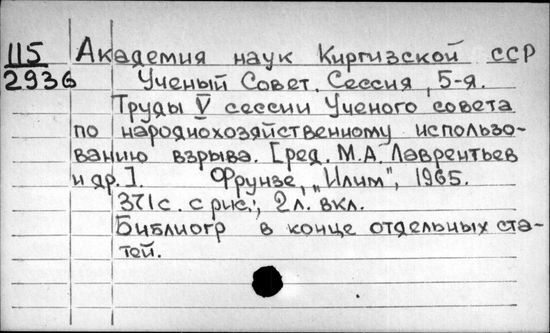 115 Академия наук Киргизской ССР
2936 Ученый Совет. Сессия, 5-я.
Труды V сессии Ученого совета
по народнохозяйственному использо-
ванию взрыва. [ред. М.А. Лаврентьев
и др.]. Фрунзе, „Илим", 1965.
371 с. с рис.; 2 л. вкл.
Библиогр в конце отдельных ста-
тей.